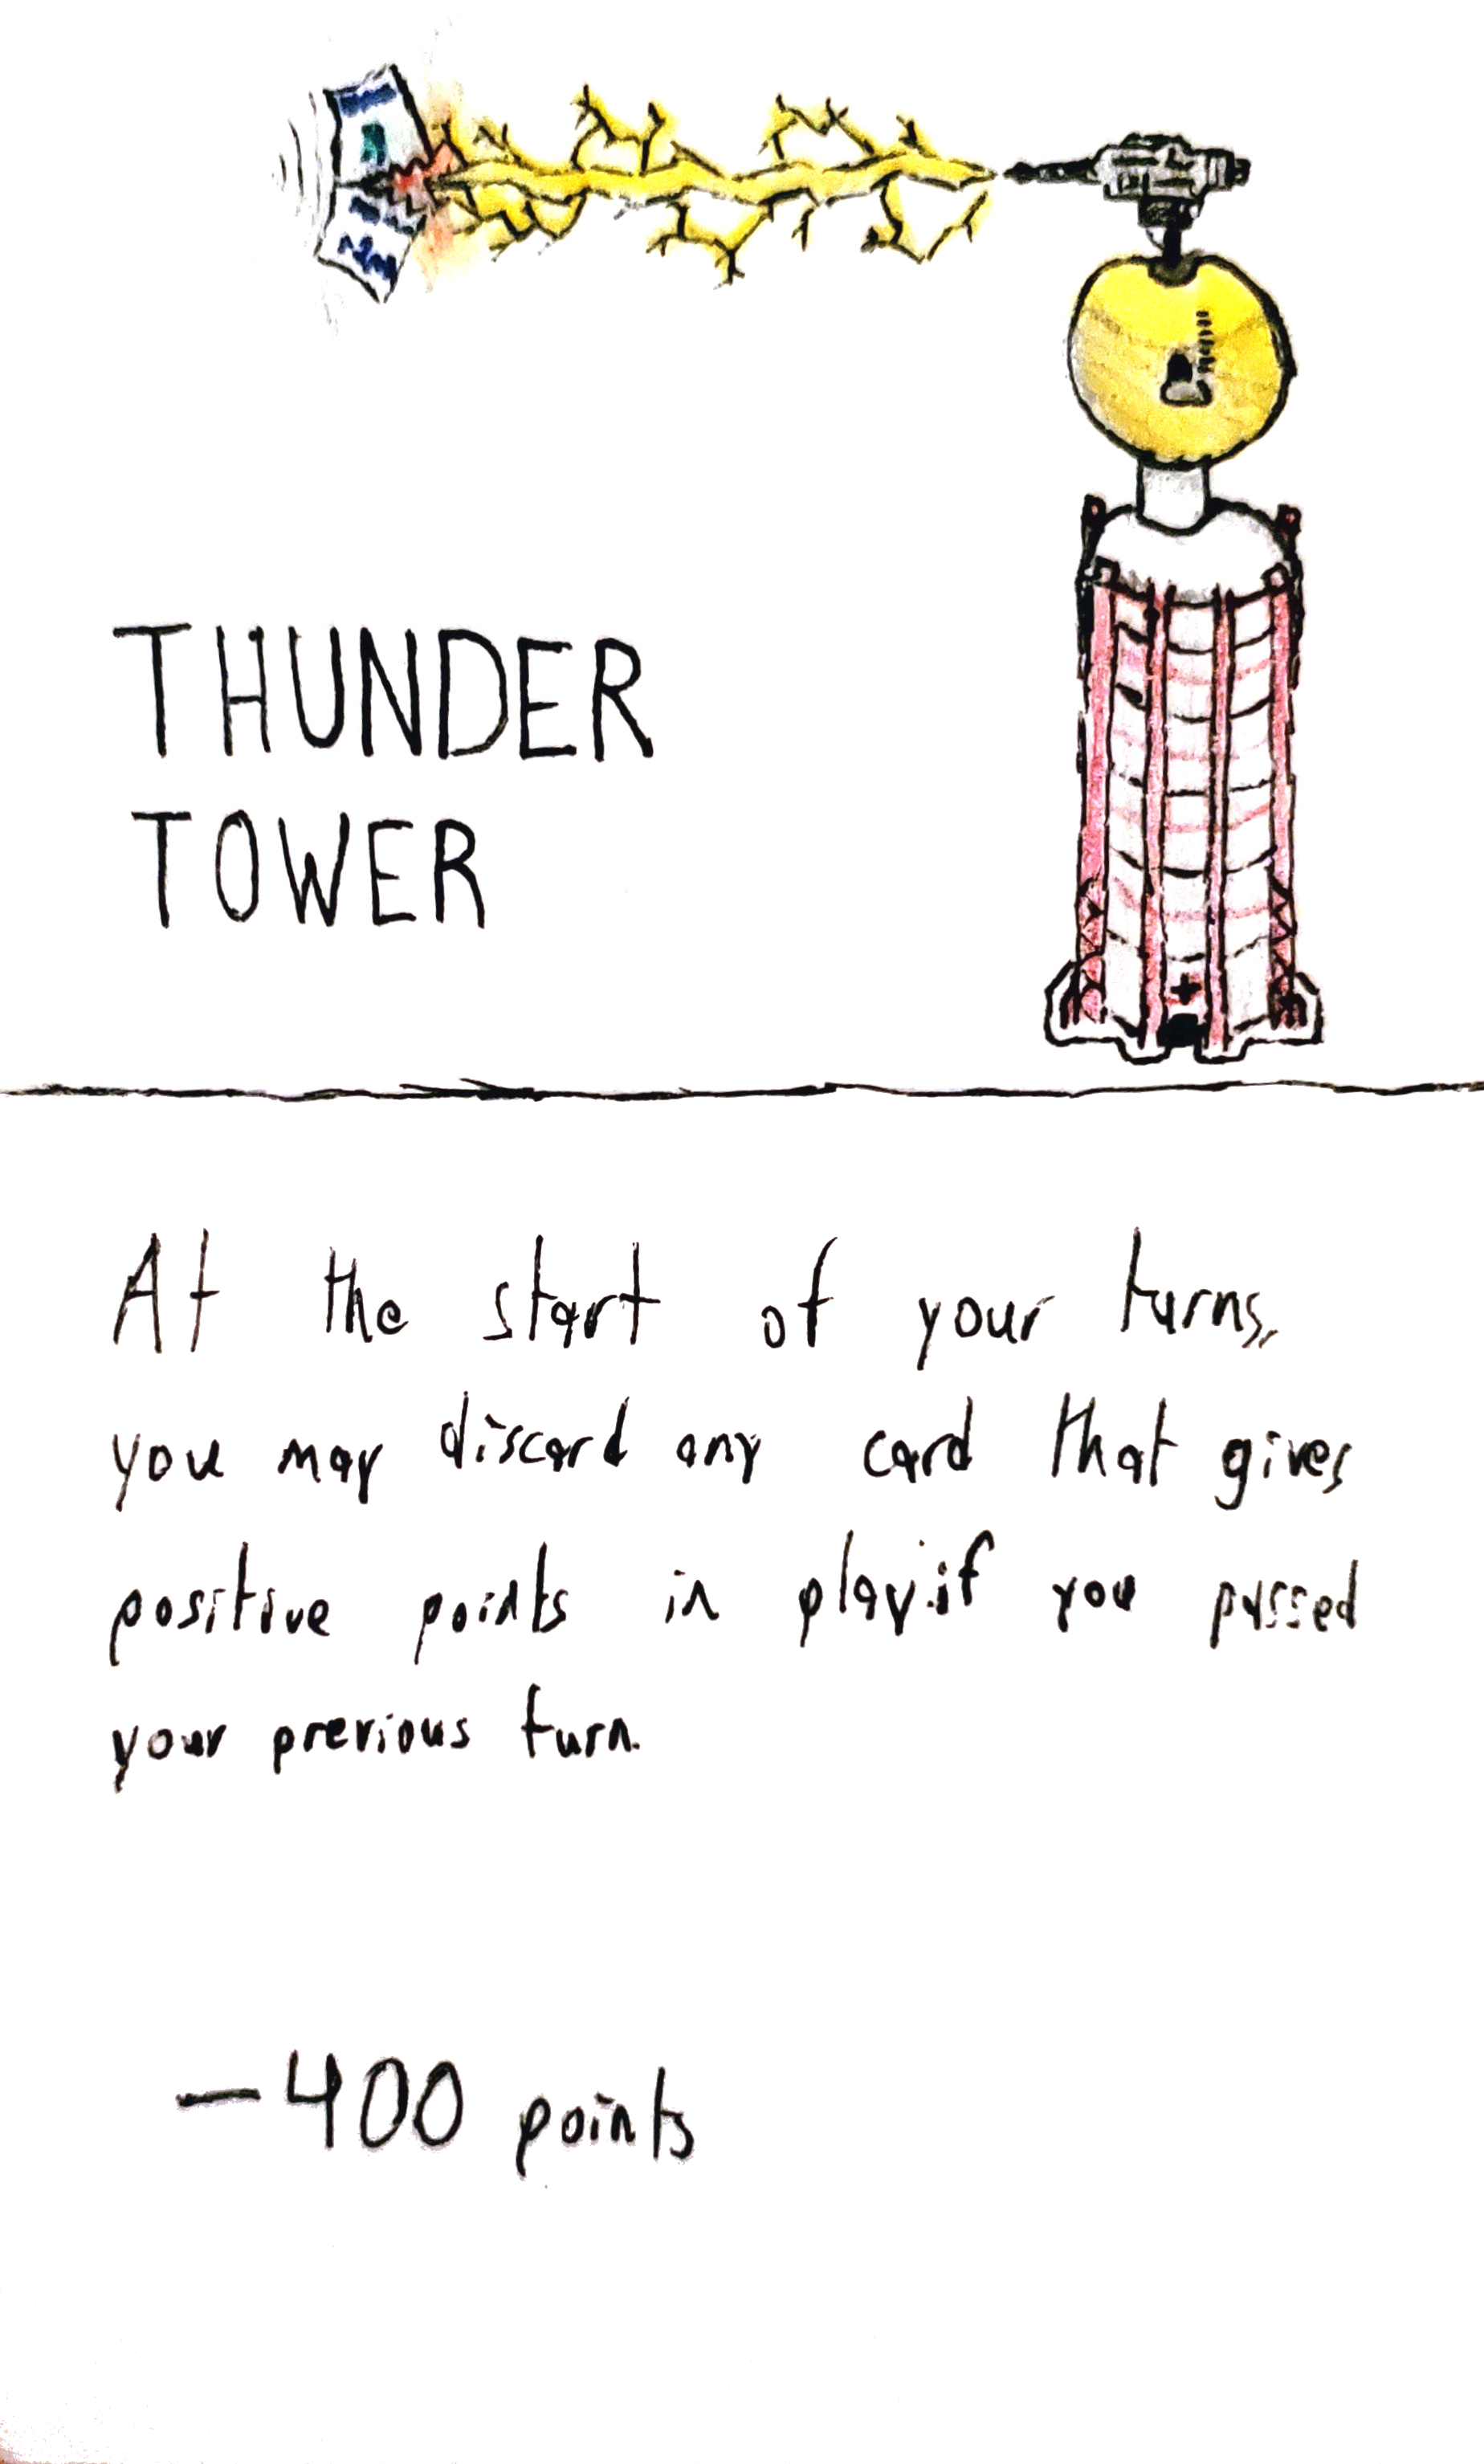 THUNDER
TOWER
At the start of your turns,
you may discard any card that gives
positive points in play if you passed
your previous turn.
-400 points